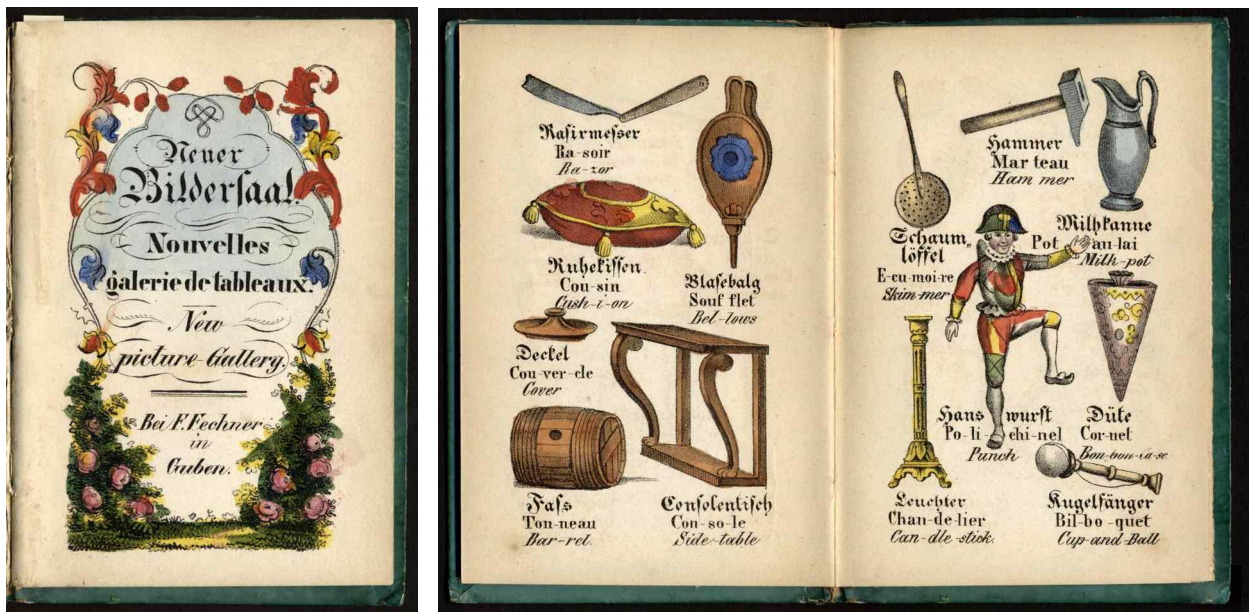 Neuer
Bildersaal.
Nouvelles
galerie de tableaux.
New
picture-Gallery.
Bei F. Fechner
in
Guben.
Rasirmesser
Ra-soir
Ra-zor
Ruhekissen.
Cou-sin
Cush-i-on
Blasebalg
Souf flet
Bel-lows
Deckel
Cou-ver-cle
Cover
Fass
Ton-neau
Bar-rel.
Consolentisch
Con-so-le
Side-table
Schaum„
löffel
E-cu-moi-re
Skim-mer
Hammer
Mar teau
Ham mer
Milchkanne
Pot au-lai
Milh-pot
Hans wurst
Po-li chi-nel
Punch
Düte
Cor-net
Bon-bon-ca-se
Leuchter
Chan-de-lier
Can-dle-stick.
Kugelfänger
Bil-bo-quet
Cup-and-Ball